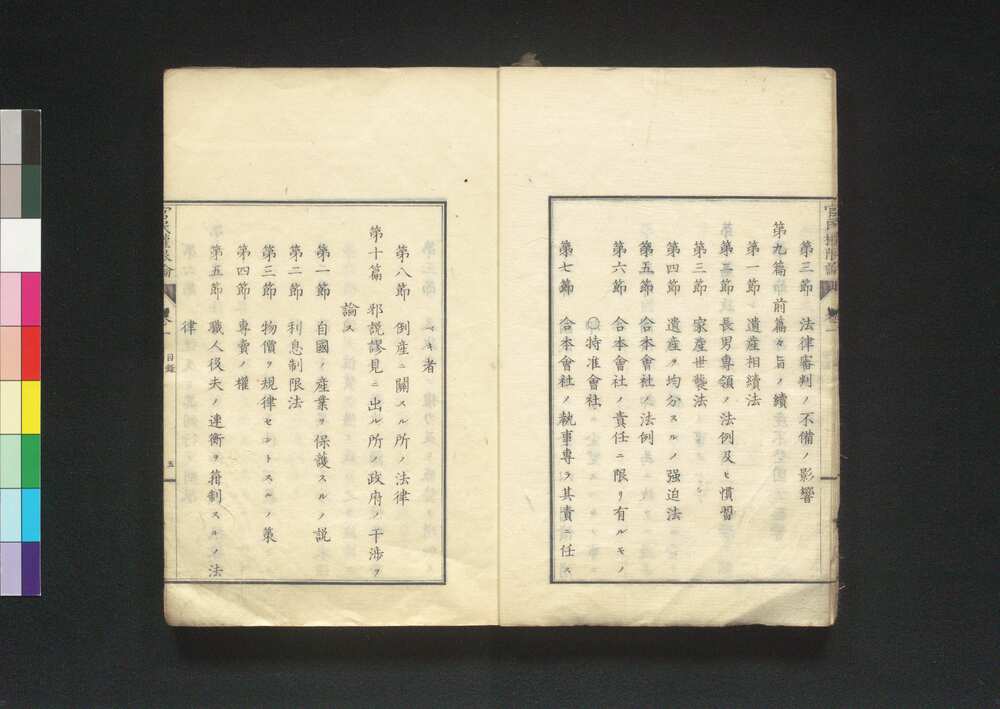 第三節 法律審判ノ不備ノ影響
第九篇 前篇々旨ノ續
第一節 遺産相續法
第二節 長男專領ノ法例及ヒ慣習
第三節 家産世襲法
第四節 遺産ヲ均分スルノ强迫法
第五節 合本會社ノ法例
第六節 合本會社ノ責任ニ限リ有ルモノ
○特准會社
第七節 合本會社ノ執事專ラ其責ニ任ス
ヘキ者
第八節 倒産ニ關スル所ノ法律
第十篇 邪説謬見ニ出ル所ノ政府ノ干渉ヲ
論ス
第一節 自國ノ産業ヲ保護スルノ説
第二節 利息制限法
第三節 物價ヲ規律セントスルノ策
第四節 專賣ノ權
第五節 職人役夫ノ連衡ヲ箝制スルノ法
律
官民權限論
卷一
目錄
五